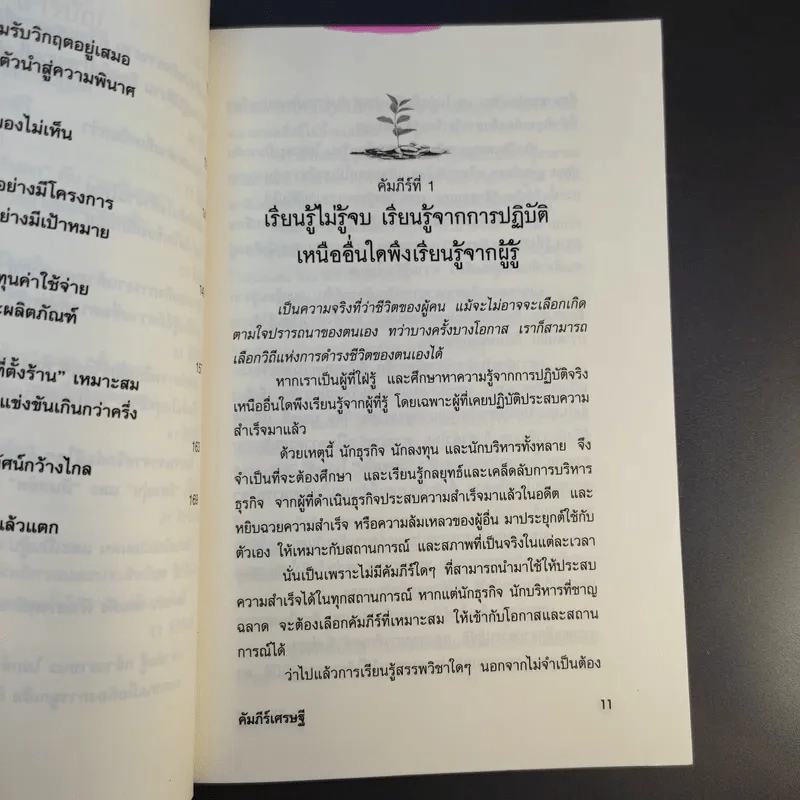 มรับวิกฤตอยู่เสมอ
ตัวนำสู่ความพินาศ
องไม่เห็น
อย่างมีโครงการ
ย่างมีเป้าหมาย
ทุนค่าใช้จ่าย
ะผลิตภัณฑ์
ที่ตั้งร้าน" เหมาะสม
แข่งขันเกินกว่าครึ่ง
163
ทัศน์กว้างไกล
169
แล้วแตก
คัมภีร์ที่ 1
เรียนรู้ไม่รู้จบ เรียนรู้จากการปฏิบัติ
เหนืออื่นใดพึงเรียนรู้จากผู้รู้
เป็นความจริงที่ว่าชีวิตของผู้คน แม้จะไม่อาจจะเลือกเกิด
ตามใจปรารถนาของตนเอง ทว่าบางครั้งบางโอกาส เราก็สามารถ
เลือกวิถีแห่งการดำรงชีวิตของตนเองได้
หากเราเป็นผู้ที่ใฝ่รู้ และศึกษาหาความรู้จากการปฏิบัติจริง
เหนืออื่นใดพึงเรียนรู้จากผู้ที่รู้ โดยเฉพาะผู้ที่เคยปฏิบัติประสบความ
สำเร็จมาแล้ว
ด้วยเหตุนี้ นักธุรกิจ นักลงทุน และนักบริหารทั้งหลาย จึง
จำเป็นที่จะต้องศึกษา และเรียนรู้กลยุทธ์และเคล็ดลับการบริหาร
ธุรกิจ จากผู้ที่ดำเนินธุรกิจประสบความสำเร็จมาแล้วในอดีต และ
หยิบฉวยความสำเร็จ หรือความล้มเหลวของผู้อื่น มาประยุกต์ใช้กับ
ตัวเอง ให้เหมาะกับสถานการณ์ และสภาพที่เป็นจริงในแต่ละเวลา
นั่นเป็นเพราะไม่มีคัมภีร์ใดๆ ที่สามารถนำมาใช้ให้ประสบ
ความสำเร็จได้ในทุกสถานการณ์ หากแต่นักธุรกิจ นักบริหารที่ชาญ
ฉลาด จะต้องเลือกคัมภีร์ที่เหมาะสม ให้เข้ากับโอกาสและสถาน
การณ์ได้
ว่าไปแล้วการเรียนรู้สรรพวิชาใดๆ นอกจากไม่จำเป็นต้อง
คัมภีร์เศรษฐี
11